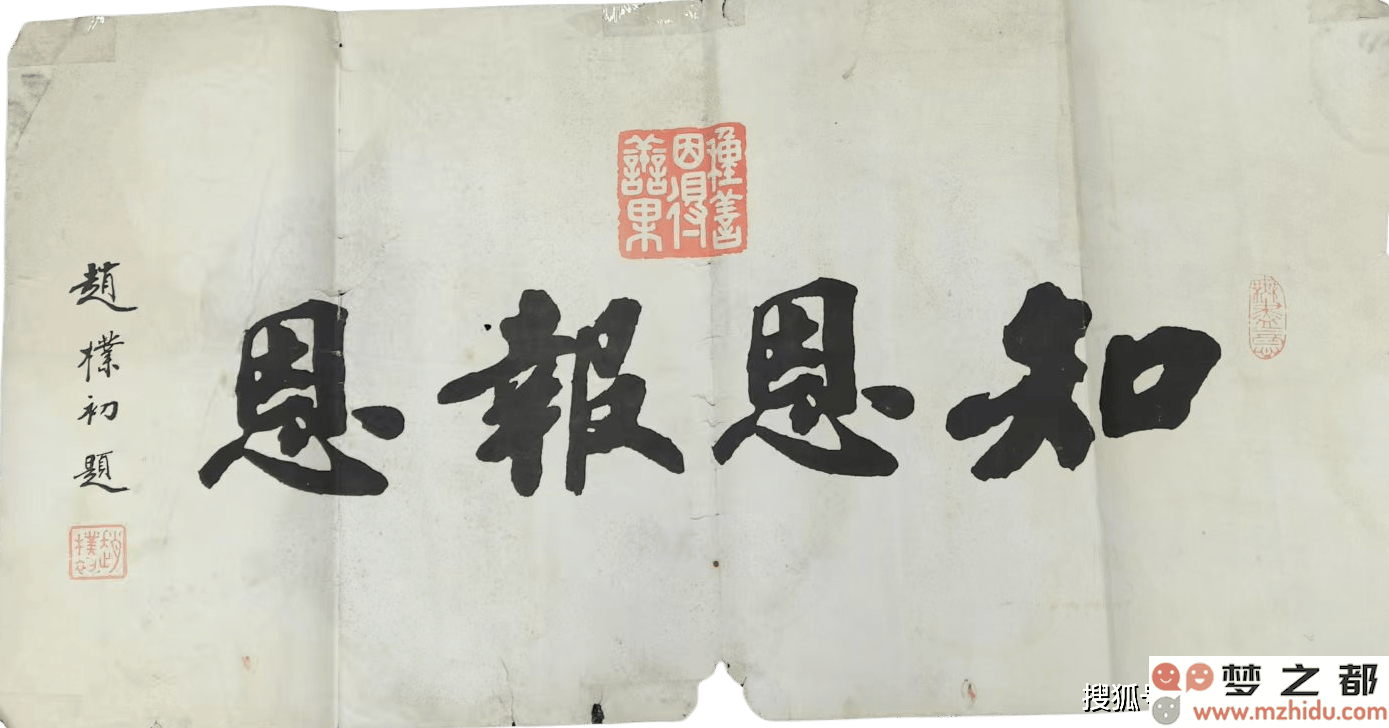 種善因得譱果
知恩報恩
趙樸初題
趙樸初
搜狐
梦之都
www.mzhidu.com